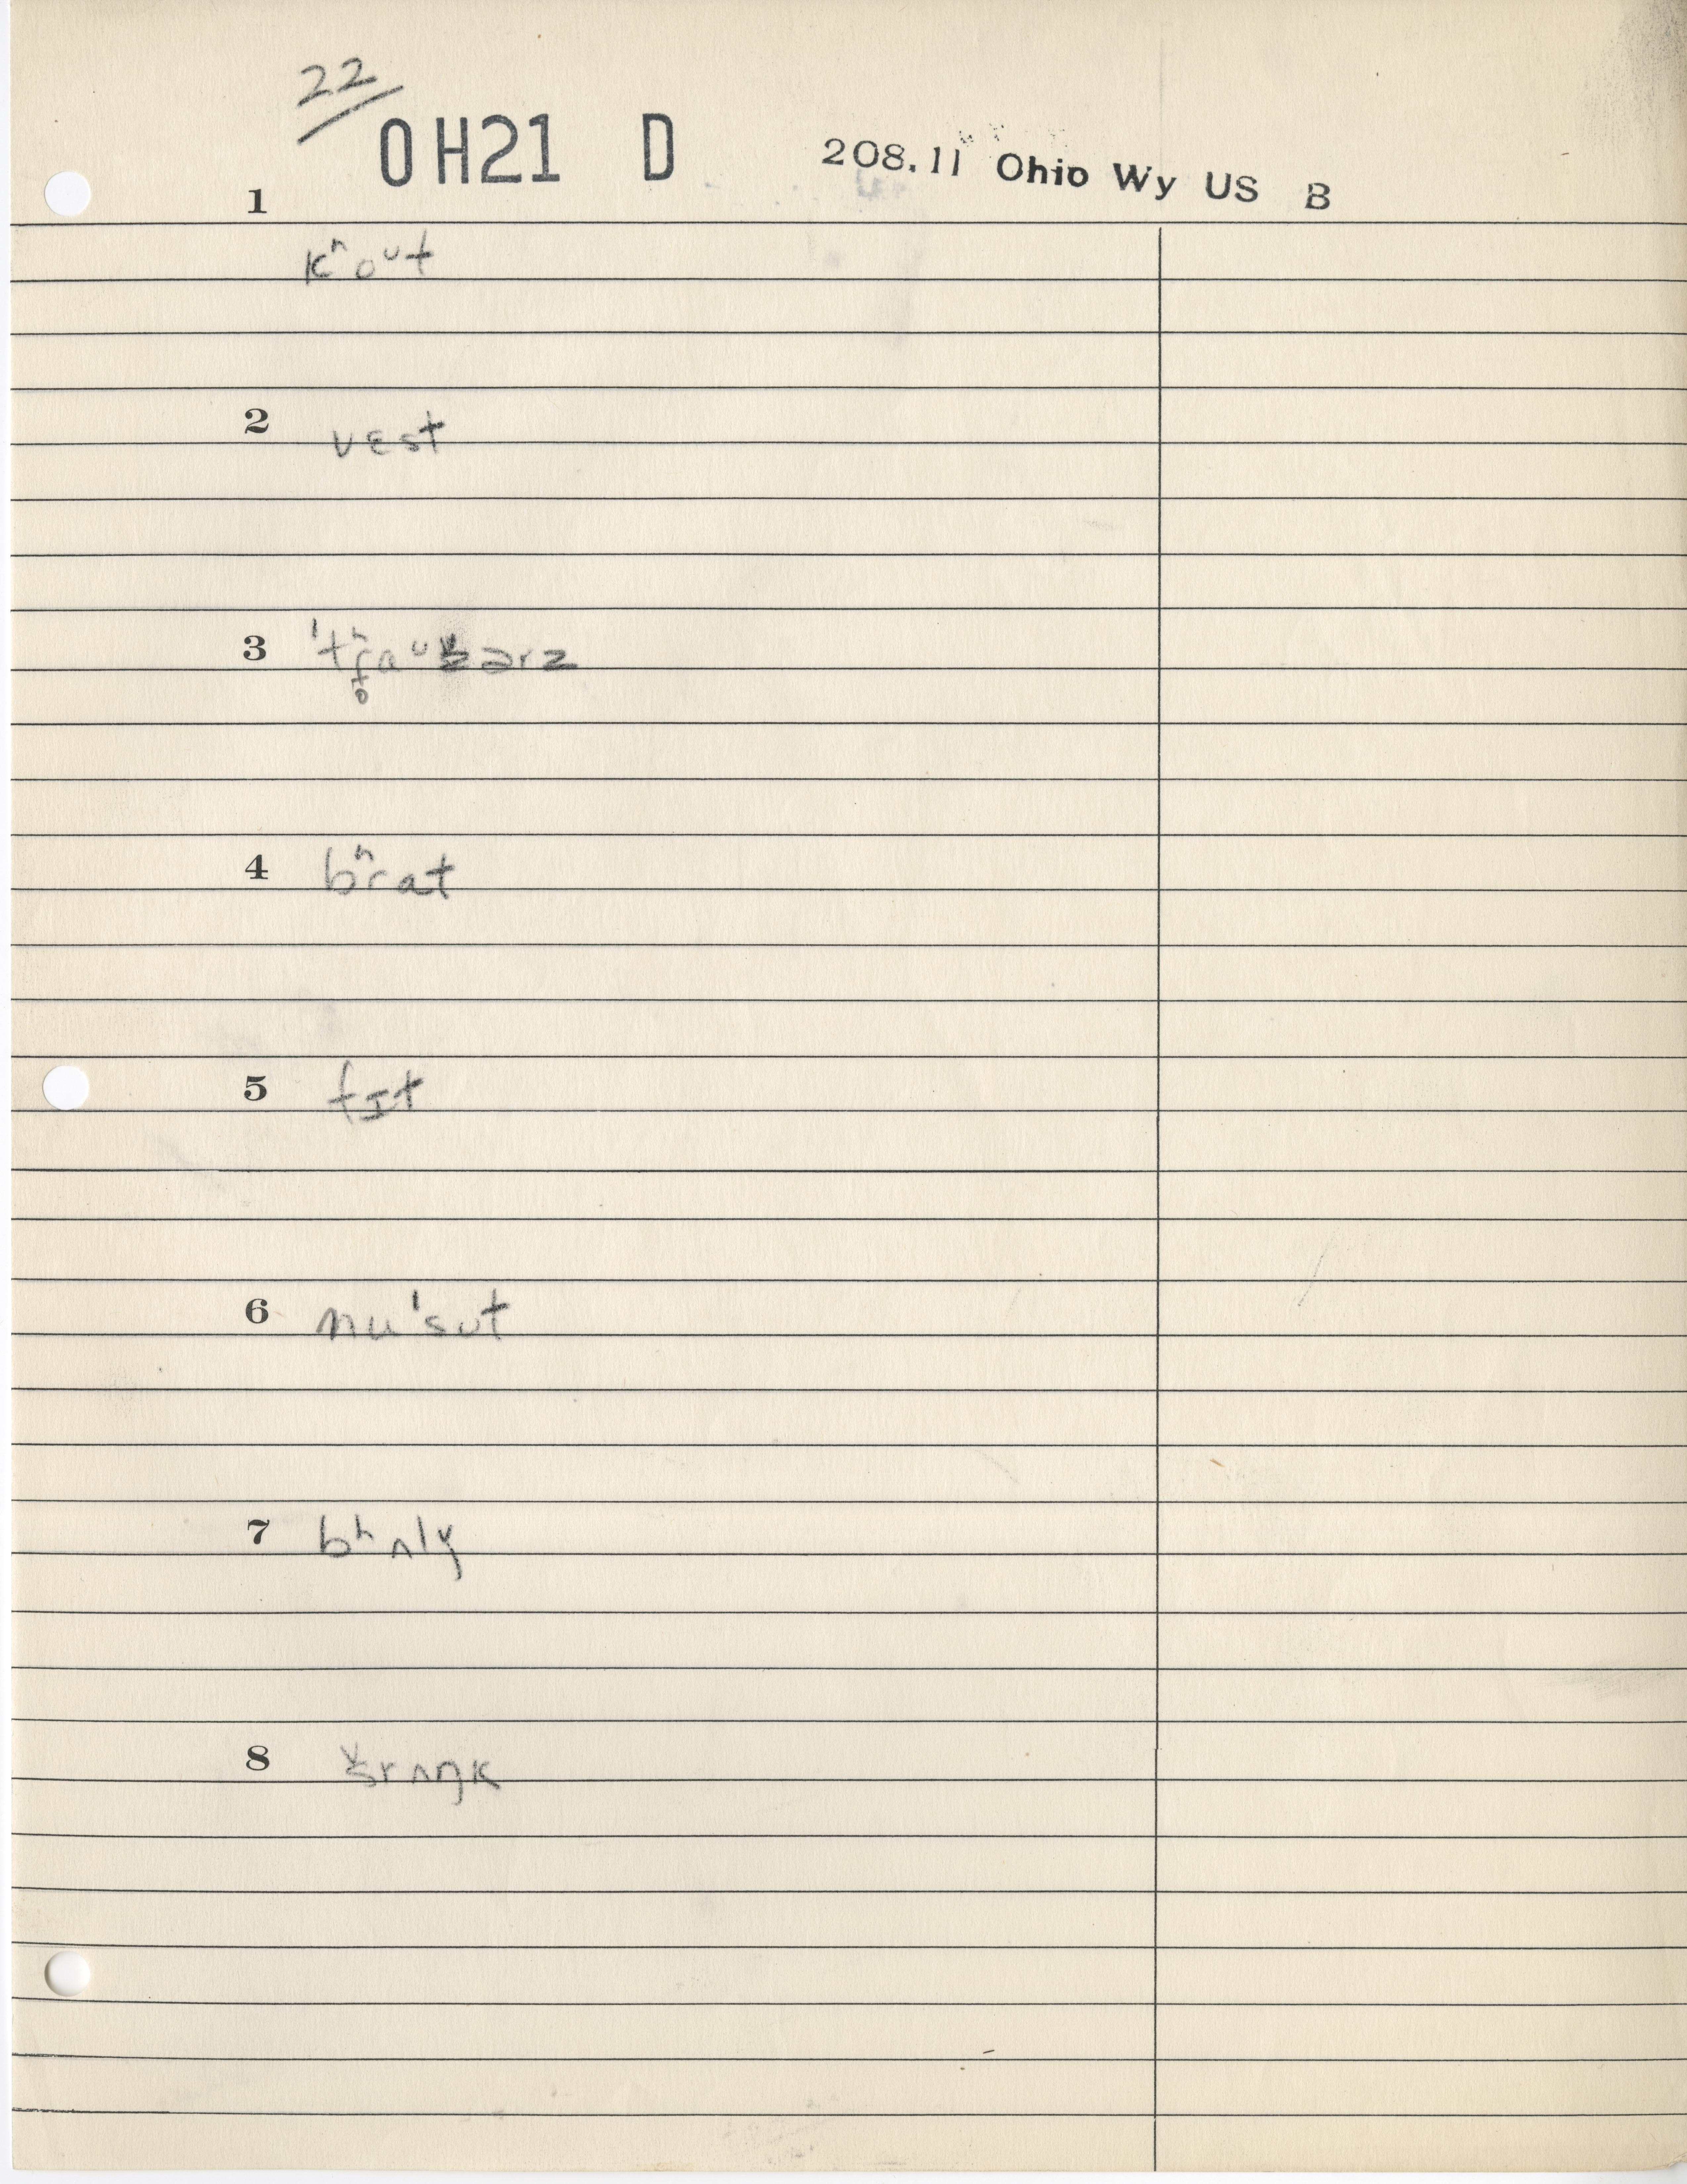 22
OH21 D 208.11 Ohio Wy US B
1
kʰoᵘt
2 vɛst
3 ˈtʰr̥aᵘžərz
4 bʰrat
5 fɪt
6 nuˈsut
7 bʰʌlǰ
8 šrʌŋk